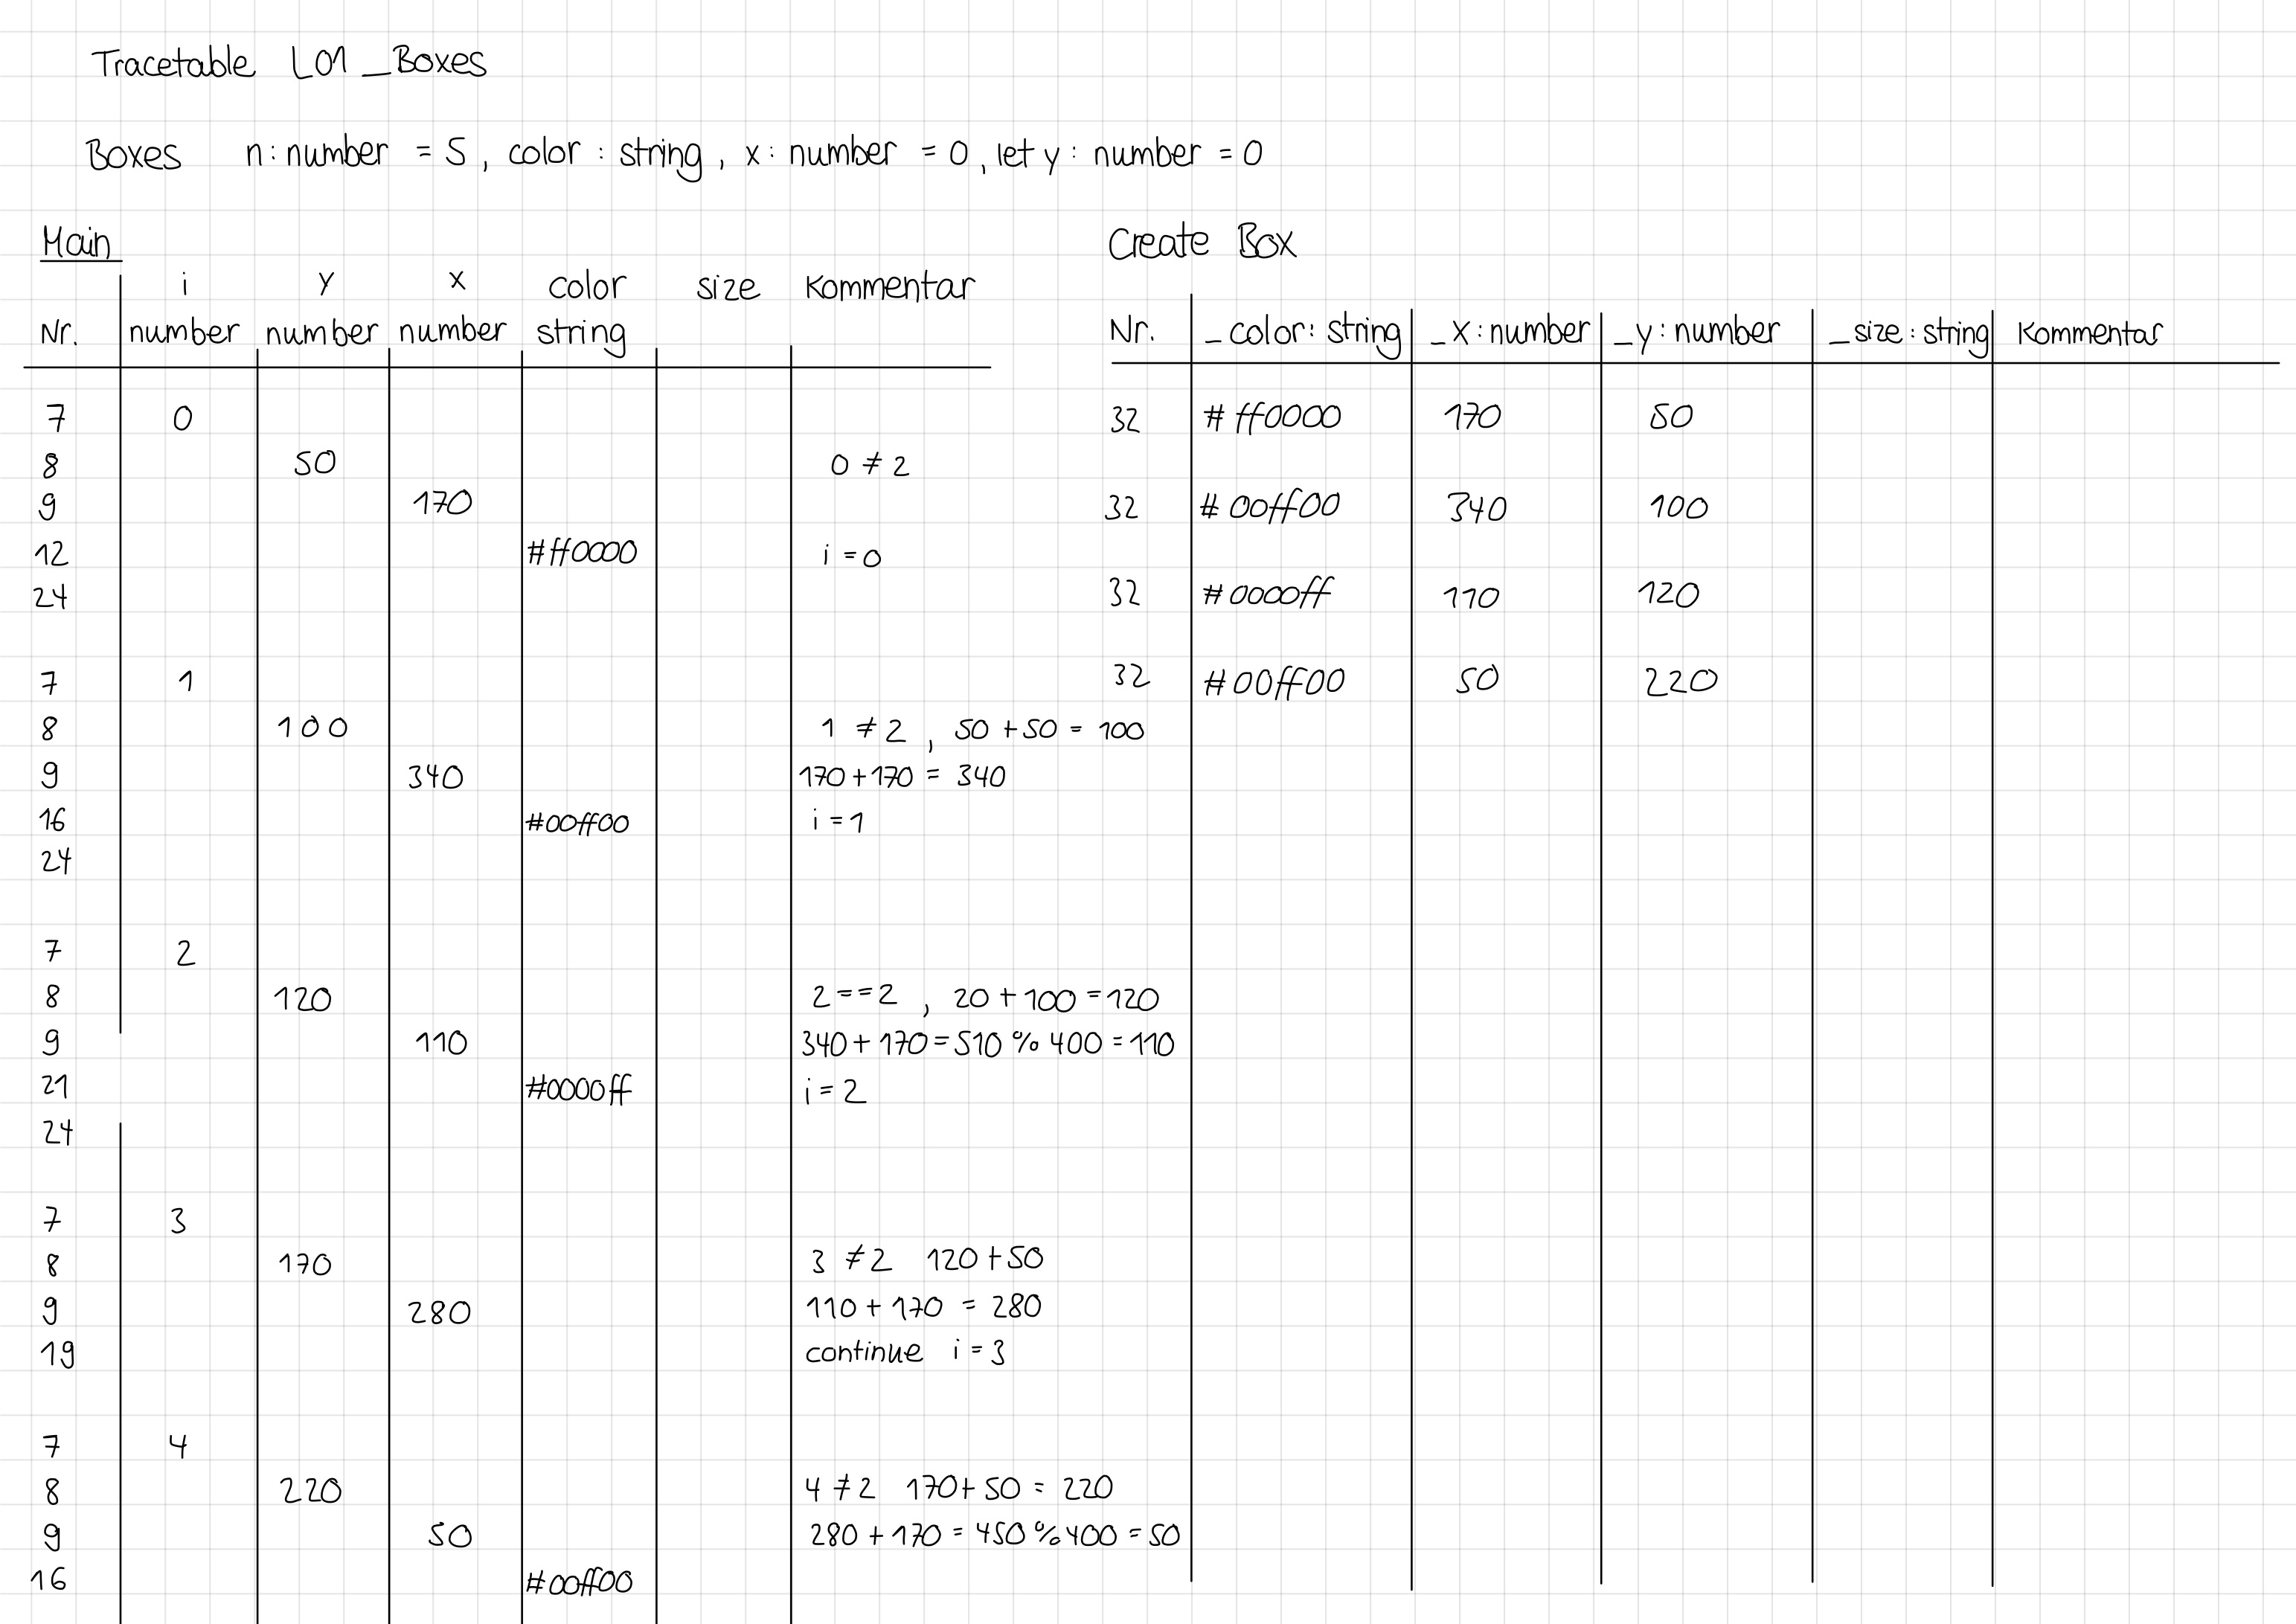 Tracetable L01_Boxes
Boxes n: number = 5, color: string, x: number = 0, let y: number = 0
Main
i y x color size Kommentar
Nr. number number number string
7 0
8 50 0 ≠ 2
9 170
12 #ff0000 i = 0
24
7 1
8 100 1 ≠ 2, 50 + 50 = 100
9 340 170 + 170 = 340
16 #00ff00 i = 1
24
7 2
8 120 2 == 2, 20 + 100 = 120
9 110 340 + 170 = 510 % 400 = 110
21 #0000ff i = 2
24
7 3
8 170 3 ≠ 2 120 + 50
9 280 110 + 170 = 280
19 continue i = 3
7 4
8 220 4 ≠ 2 170 + 50 = 220
9 50 280 + 170 = 450 % 400 = 50
16 #00ff00
Create Box
Nr. _color: string _x: number _y: number _size: string Kommentar
32 #ff0000 170 50
32 #00ff00 340 100
32 #0000ff 110 120
32 #00ff00 50 220